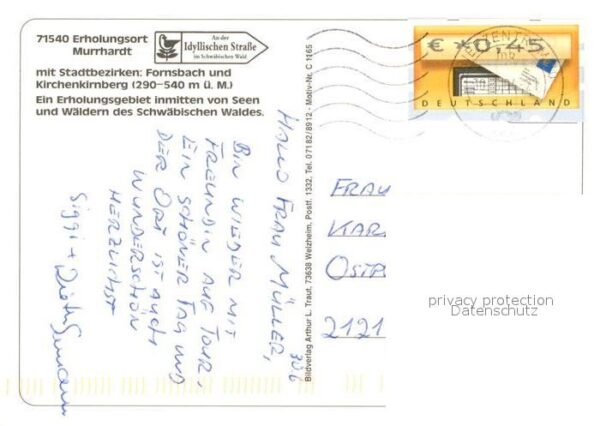 71540 Erholungsort
Murrhardt
An der
Idyllischen Straße
im Schwäbischen Wald
mit Stadtbezirken: Fornsbach und
Kirchenkirnberg (290–540 m ü. M.)
Ein Erholungsgebiet inmitten von Seen
und Wäldern des Schwäbischen Waldes.
HALLO FRAU MÜLLER,
BIN WIEDER MIT
FREUNDIN AUF TOUR,
EIN SCHÖNER TAG UND
DER ORT IST AUCH
WUNDERSCHÖN
HERZLICHST
Siggi +
Bildverlag Arthur L. Traut, 73638 Welzheim, Postf. 1332, Tel. 07182/8912 - Motiv-Nr. C 1665
€ *0,45
DEUTSCHLAND
BRIEFZENTRUM
FRAU
KAR
OSTP
2121
privacy protection
Datenschutz